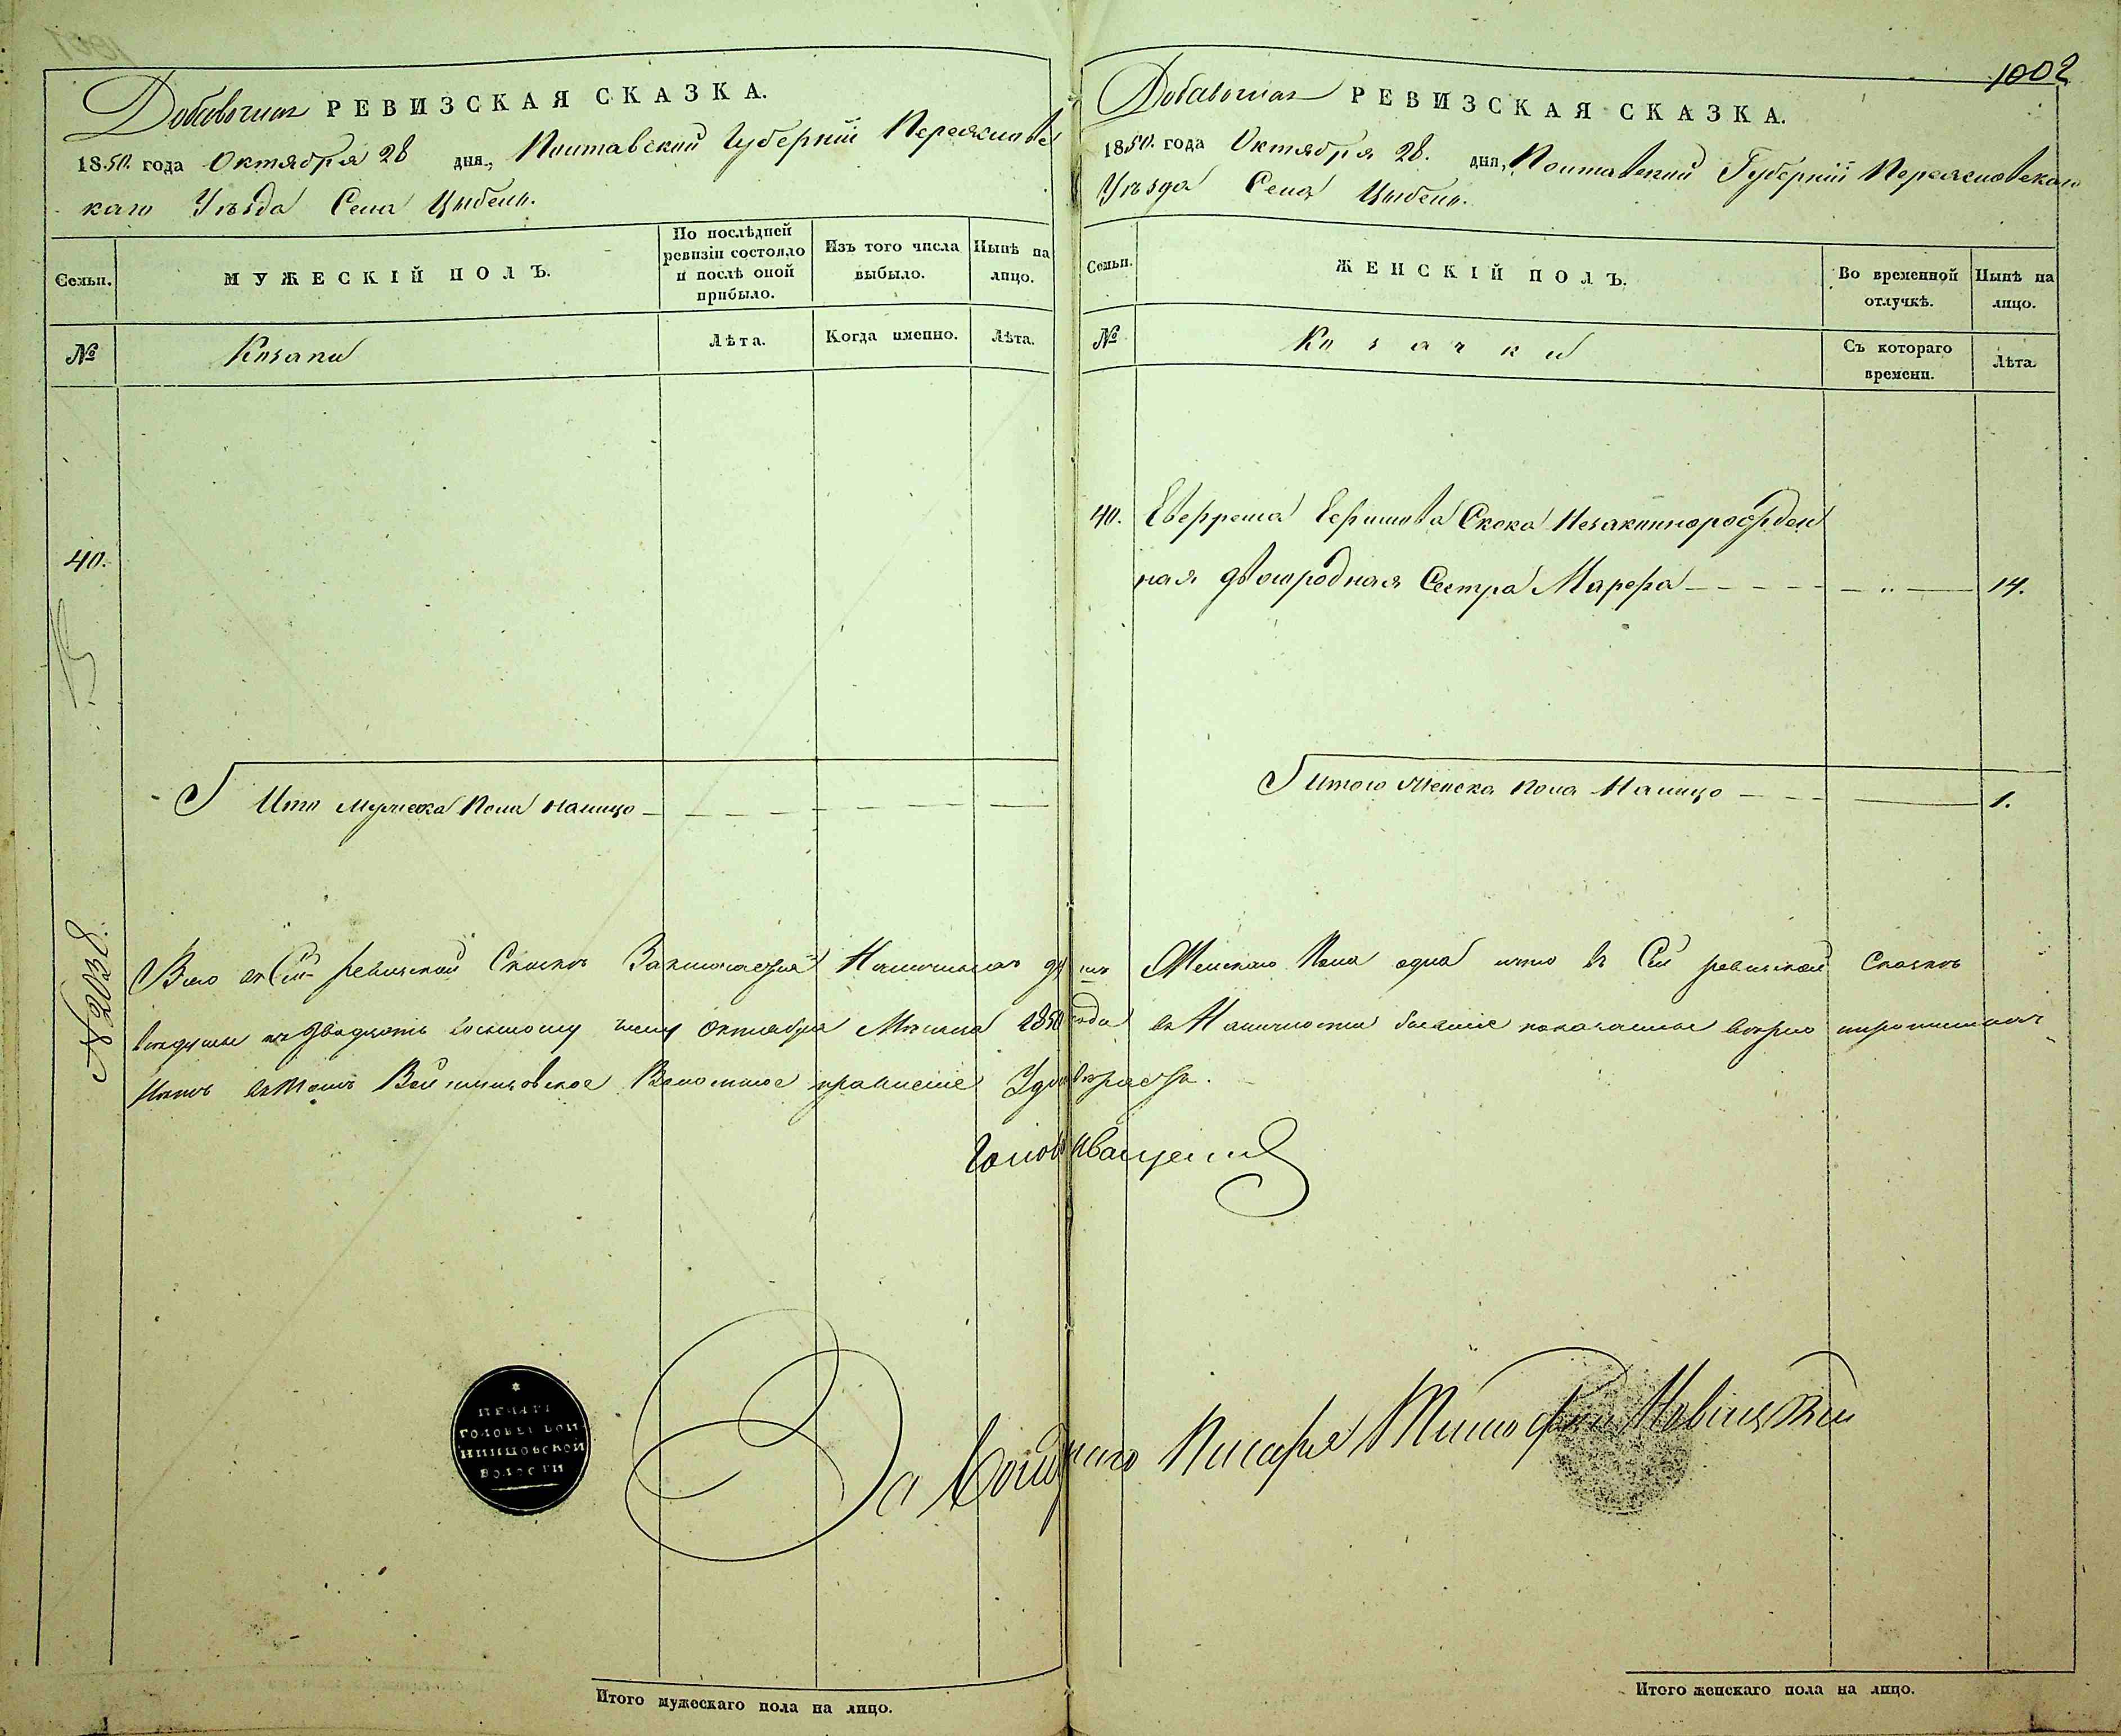 Добавочная РЕВИЗСКАЯ СКАЗКА.
1850. года Октября 28 дня, Полтавской Губерніи Переяславс
каго Уѣзда Села Цыбель.
Семьи.
МУЖЕСКІЙ ПОЛЪ.
По послѣдней
ревизіи состояло
и послѣ оной
прибыло.
Изъ того числа
выбыло.
Нынѣ на
лицо.
№
Козаки
Лѣта.
Когда именно.
Лѣта.
40.
Итого мужеска Пола налицо
№ 2038.
1002
Добавочная РЕВИЗСКАЯ СКАЗКА.
1850. года Октября 28. дня, Полтавской Губерніи Переяславскаго
Уѣзда Села Цыбель.
Семьи.
ЖЕНСКІЙ ПОЛЪ.
Во временной
отлучкѣ.
Нынѣ на
лицо.
№
Козачки
Съ котораго
времени.
Лѣта.
40. Скока Незаконнорожден
ная двоюродная Сестра Марфа 14.
Итого Женска Пола Налицо 1.
Всего въ Сей ревизской Сказкѣ Заключается Наличныхъ душъ Женскаго Пола одна что въ Сей ревизской Сказкѣ
двадцать восьмому числу Октября Мѣсяца 1850 года въ Наличности
въ томъ Войтинцовское Волостное правленіе Удостовѣряетъ.
Голова Иващенко
ПЕЧАТЬ
ГОЛОВЫ ВОЙ
ВОЛОСТИ
За Волостнаго Писаря Тимофей Новицкій
Итого мужескаго пола на лицо.
Итого женскаго пола на лицо.